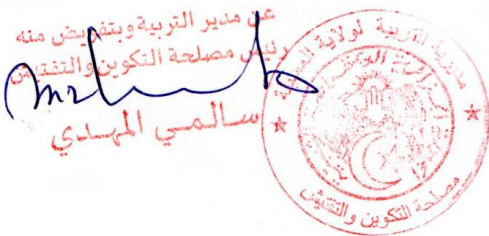 عن مدير التربية وبتفويض منه
رئيس مصلحة التكوين والتفتيش
سالمي المهدي
مديرية التربية لولاية
مصلحة التكوين والتفتيش